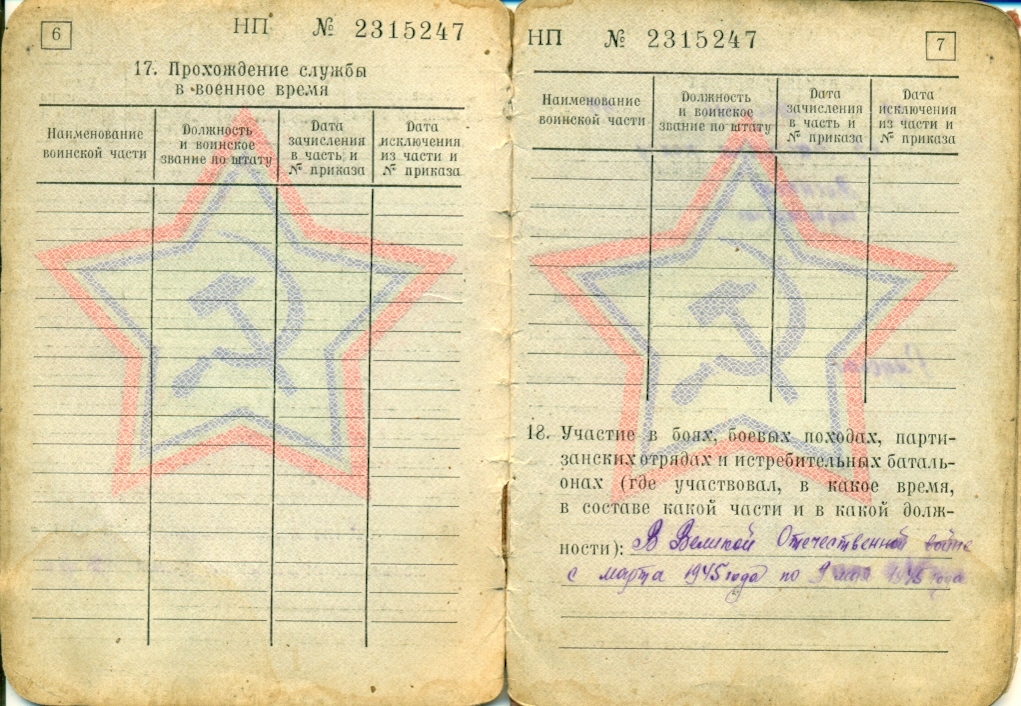 6
НП № 2315247
17. Прохождение службы
в военное время
Наименование
воинской части
Должность
и воинское
звание по штату
Дата
зачисления
в часть и
№ приказа
Дата
исключения
из части и
№ приказа
НП № 2315247
7
Наименование
воинской части
Должность
и воинское
звание по штату
Дата
зачисления
в часть и
№ приказа
Дата
исключения
из части и
№ приказа
18. Участие в боях, боевых походах, парти-
занских отрядах и истребительных баталь-
онах (где участвовал, в какое время,
в составе какой части и в какой долж-
ности): В Великой Отечественной войне
с марта 1945 года по 9 мая 1945 года